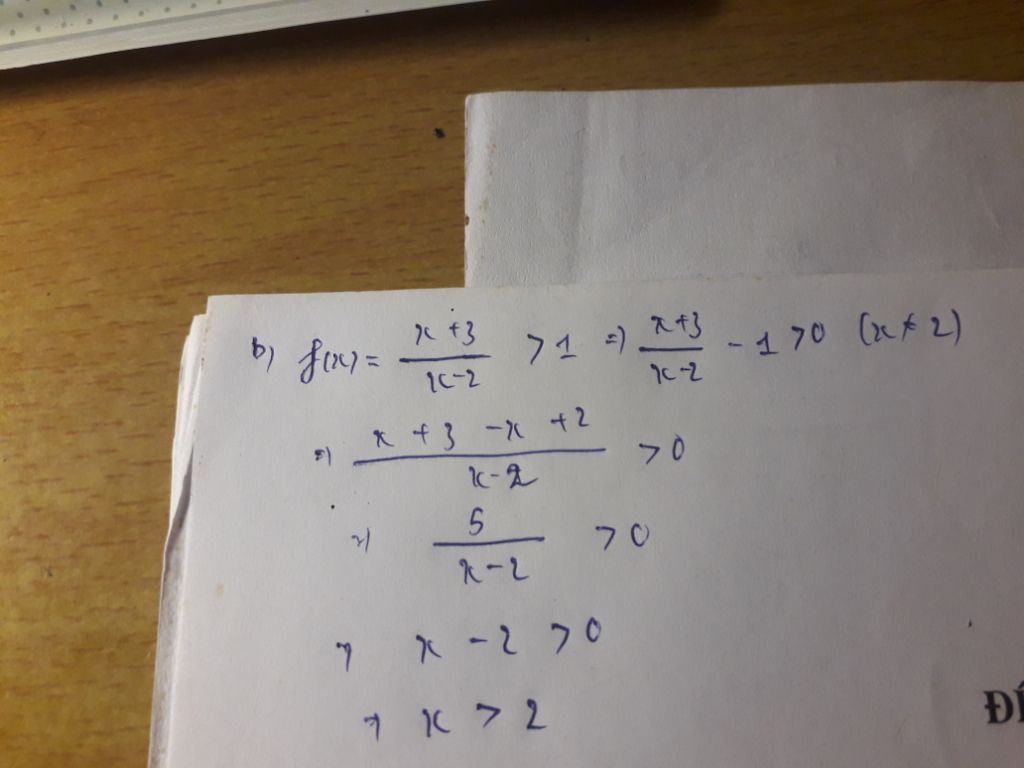 b) f(x) = x+3/x-2 > 1 => x+3/x-2 - 1 > 0 (x ≠ 2)
=> x + 3 - x + 2/x-2 > 0
=> 5/x-2 > 0
=> x - 2 > 0
=> x > 2